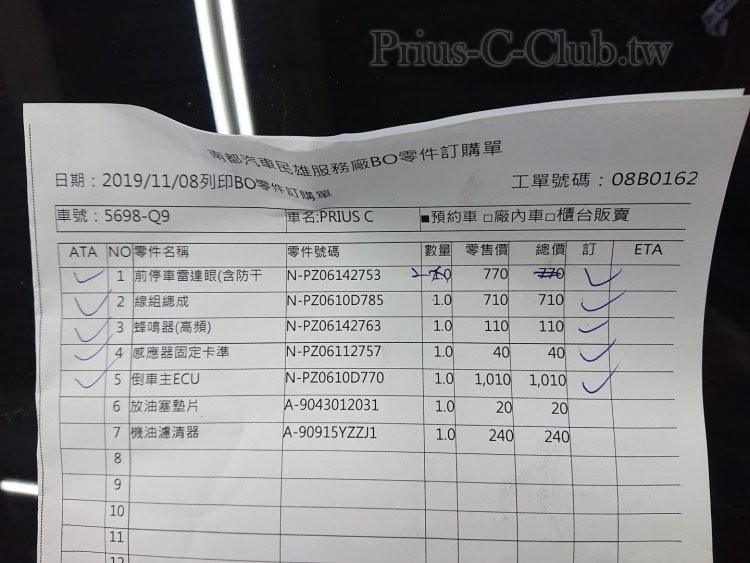 Prius-C-Club.tw
南都汽車民雄服務廠BO零件訂購單
日期：2019/11/08列印BO零件訂購單 工單號碼：08B0162
車號：5698-Q9 車名:PRIUS C ■預約車 □廠內車□櫃台販賣
ATA NO 零件名稱 零件號碼 數量 零售價 總價 訂 ETA
1 前停車雷達眼(含防干 N-PZ06142753 770 770
2 線組總成 N-PZ0610D785 1.0 710 710
3 蜂鳴器(高頻) N-PZ06142763 1.0 110 110
4 感應器固定卡準 N-PZ06112757 1.0 40 40
5 倒車主ECU N-PZ0610D770 1.0 1,010 1,010
6 放油塞墊片 A-9043012031 1.0 20 20
7 機油濾清器 A-90915YZZJ1 1.0 240 240
8
9
10
11
12